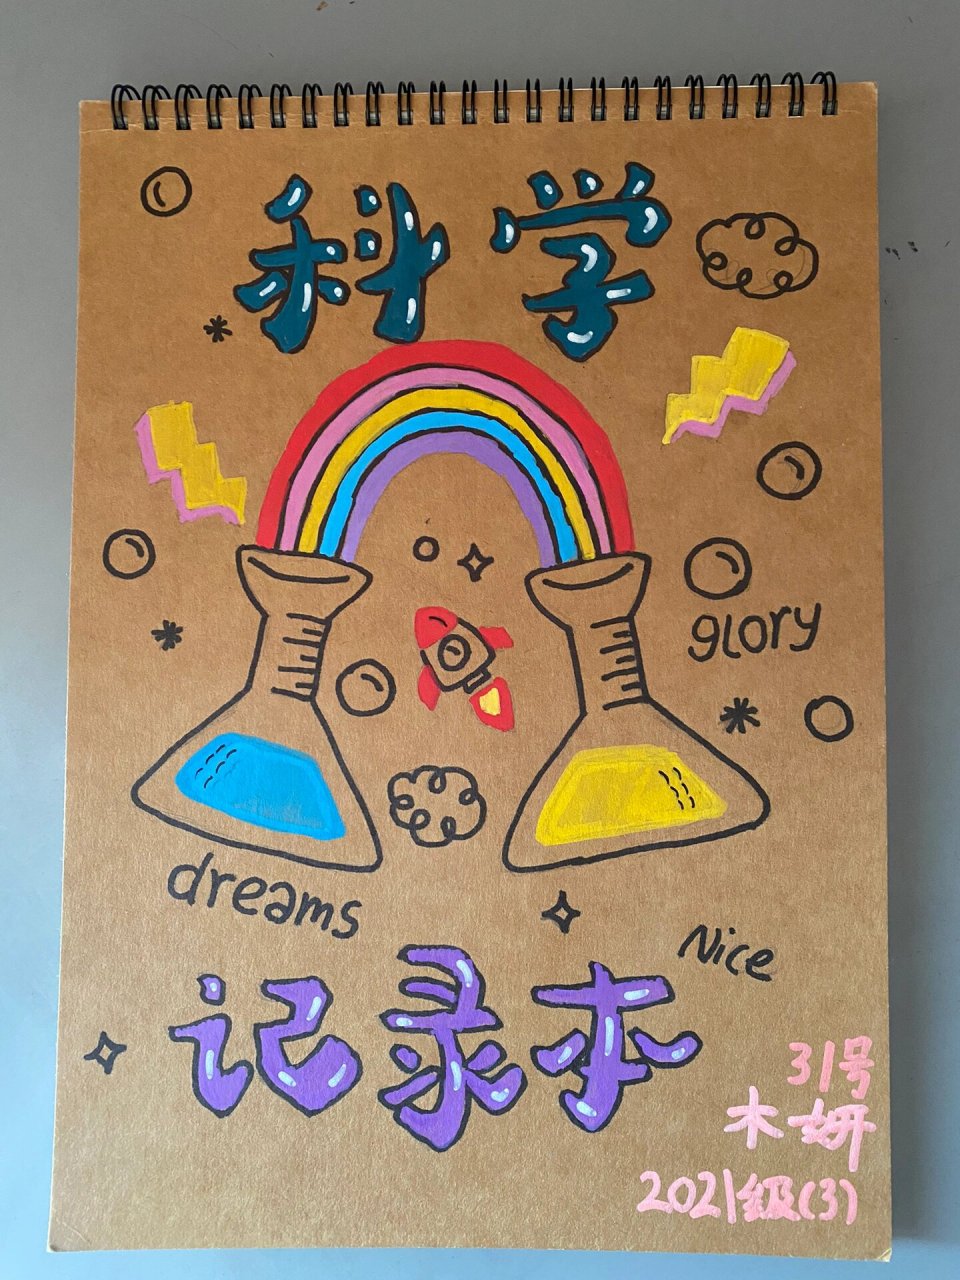 科学
glory
dreams
Nice
记录本
31号
木妍
2021级(3)